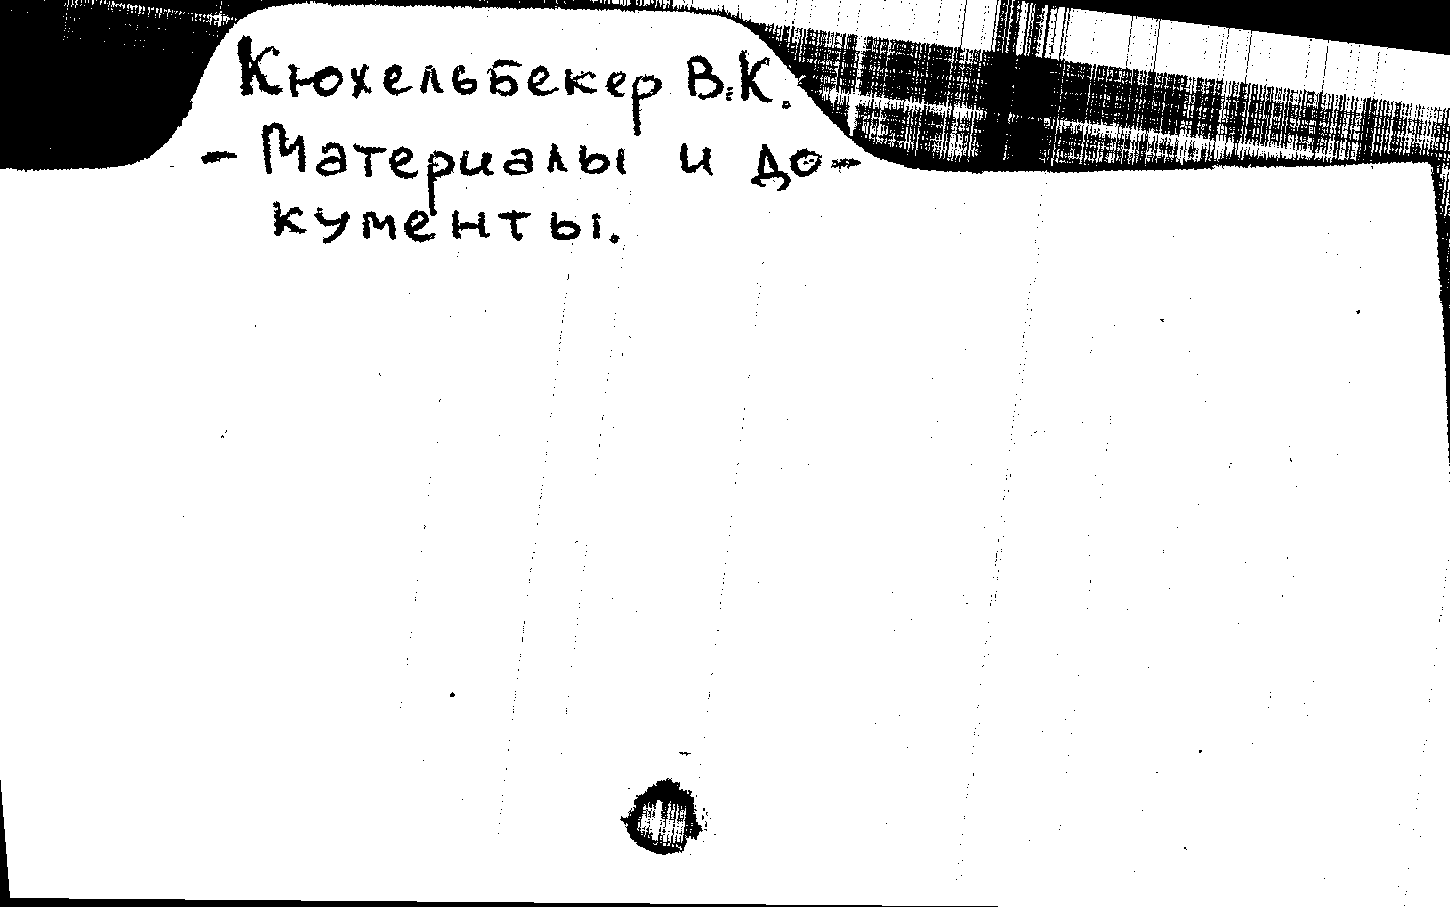 Кюхельбекер В.К.
- Материалы и до-
кументы.